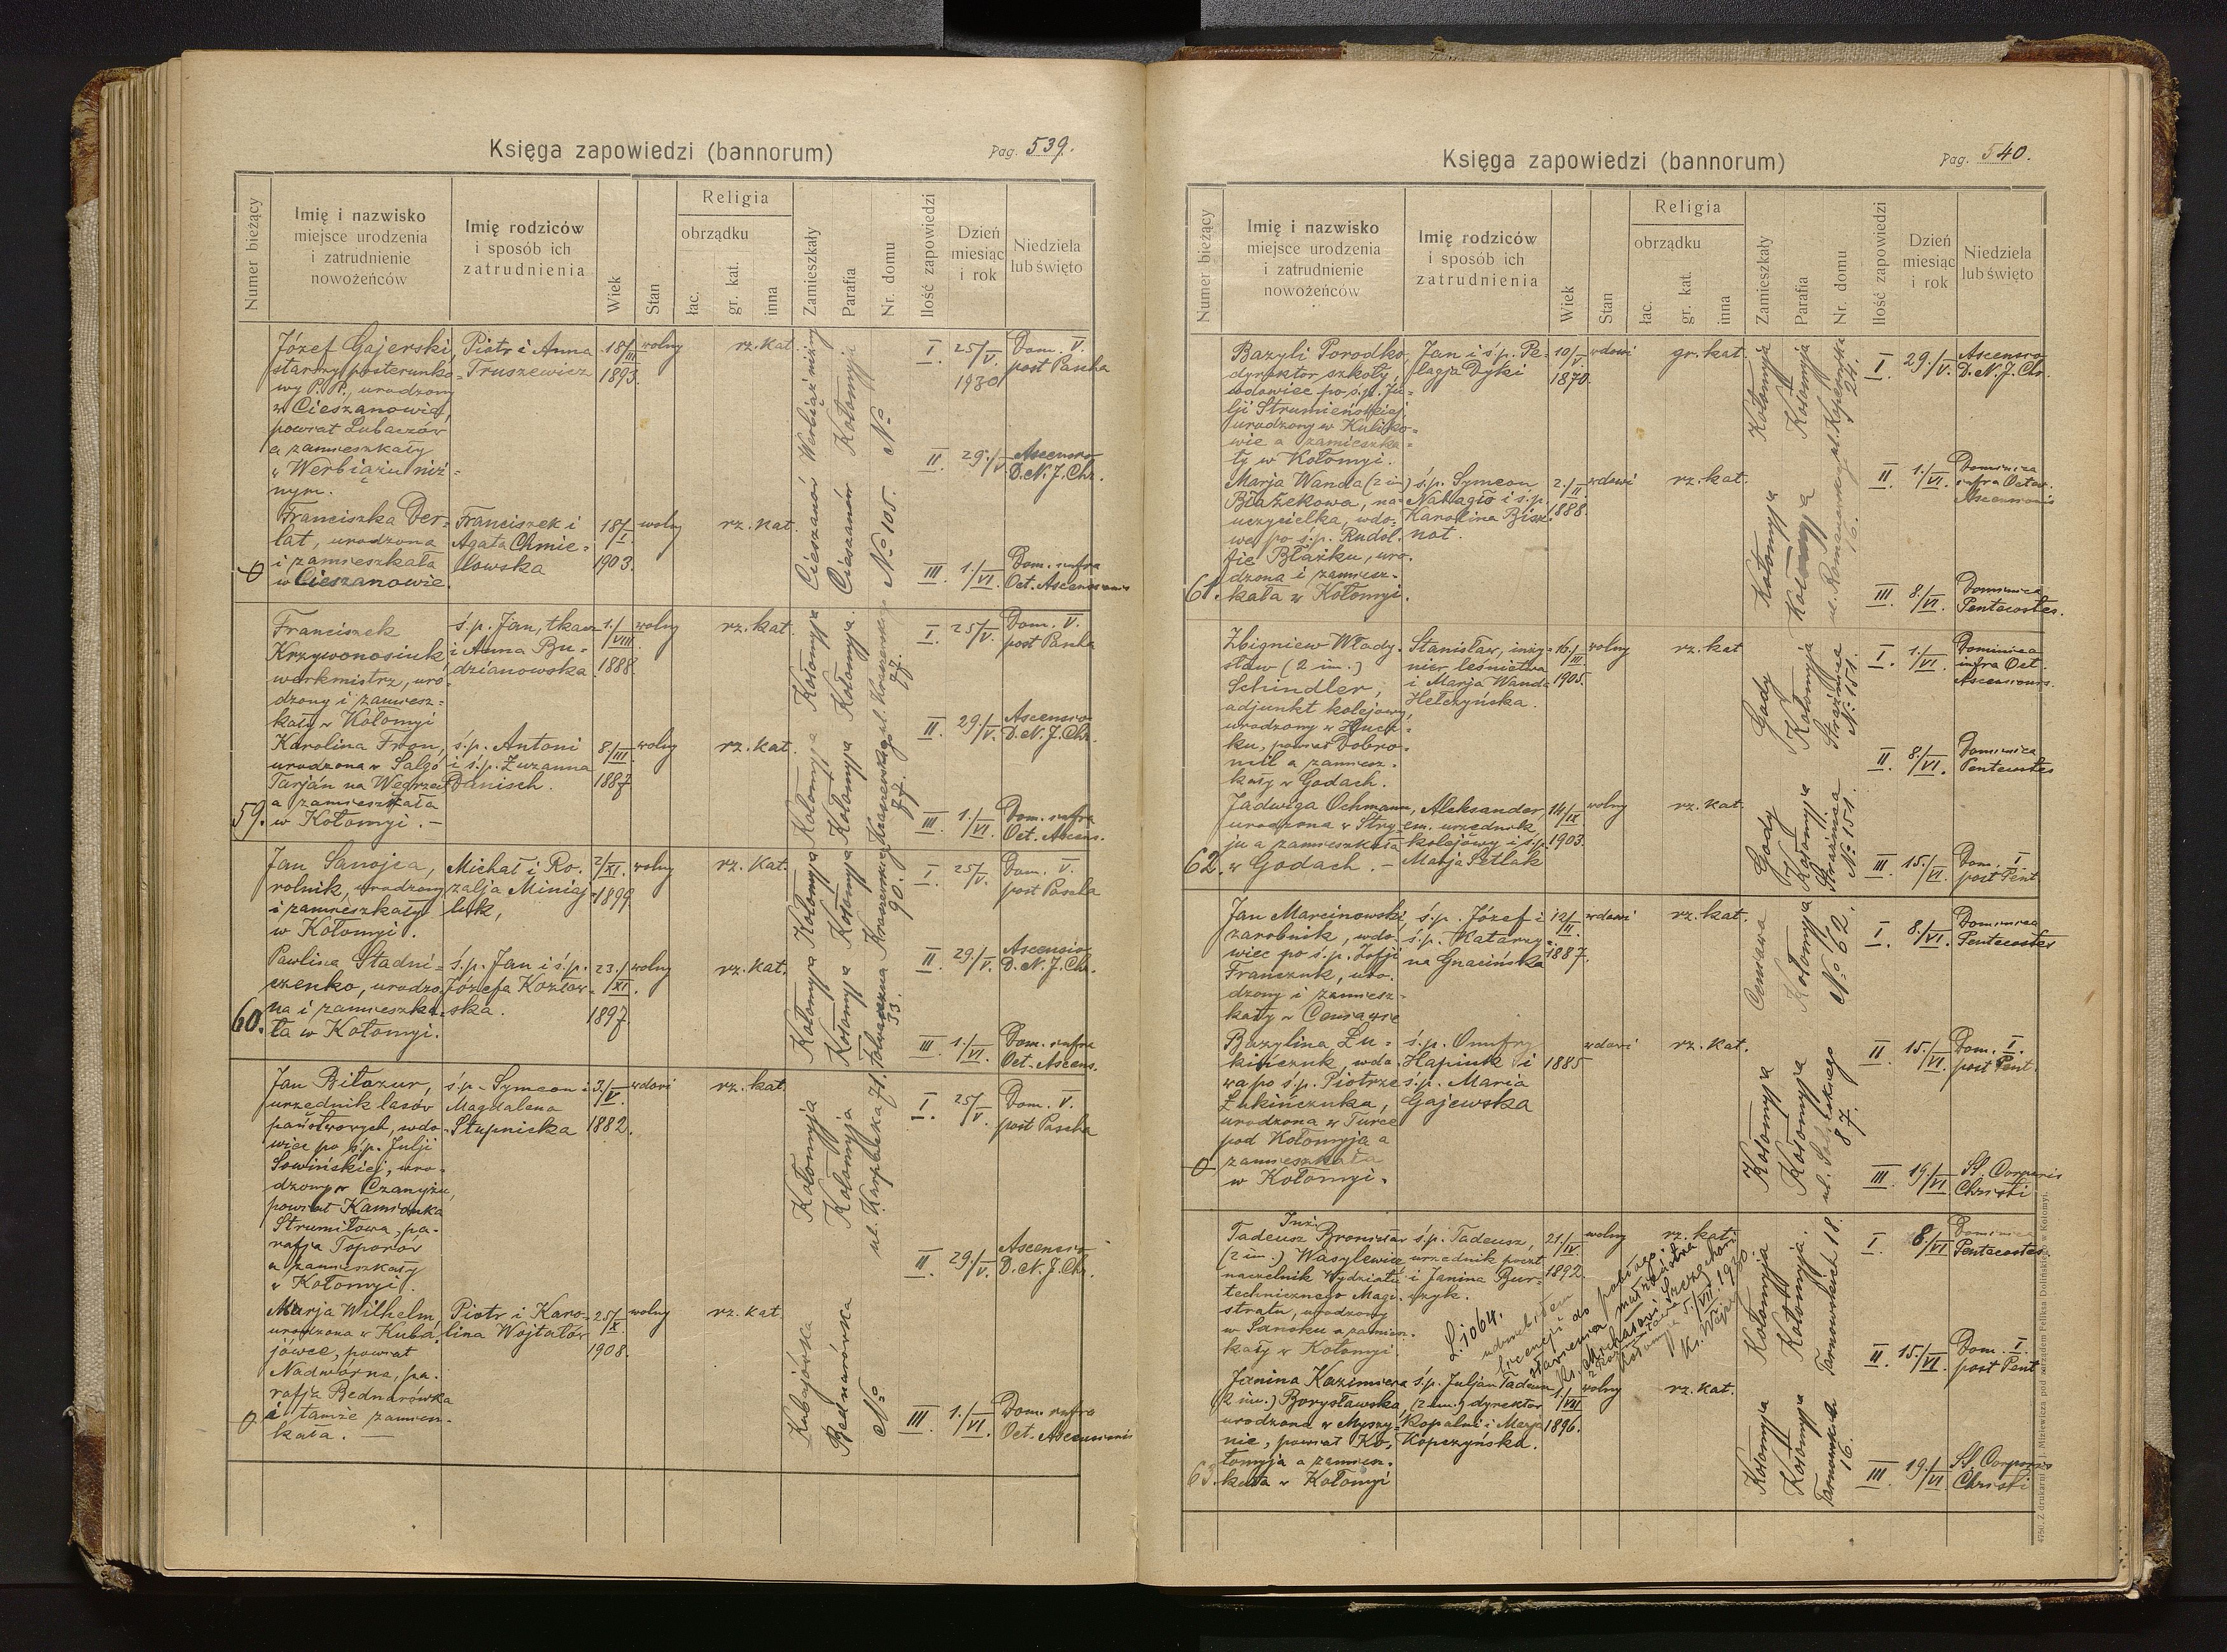 Księga zapowiedzi (bannorum)
Pag. 539.
Numer bieżący
Imię i nazwisko
miejsce urodzenia
i zatrudnienie
nowożeńców
Imię rodziców
i sposób ich
zatrudnienia
Wiek
Stan
Religia
obrządku
łac.
gr. kat.
inna
Zamieszkały
Parafia
Nr. domu
Ilość zapowiedzi
Dzień
miesiąc
i rok
Niedziela
lub święto
Józef Gajerski,
starszy posterunko-
wy P.P., urodzony
w Cieszanowie,
powiat Lubaczów
a zamieszkały
w Werbiążu niż-
nym.
Piotr i Anna
Truszewicz
18/III
1893.
wolny
rz. kat.
Werbiąż niżny
Kołomyja
No
I 25/V. 1930 Dom. V. post Pascha
II 29./V. Ascensio D.N.J.Chr.
III 1./VI. Dom. infra Oct. Ascensionis
0
Franciszka Der-
lat, urodzona
i zamieszkała
w Cieszanowie.
Franciszek i
Agata Chmie-
lowska
18/I.
1903.
wolny
rz. kat.
Cieszanów
Cieszanów
No 105.
59.
Franciszek
Krzywonosiuk
werkmistrz, uro-
dzony i zamiesz-
kały w Kołomyi
ś.p. Jan, tkacz
i Anna Bu-
dzianowska
1./VIII.
1888.
wolny
rz. kat.
Kołomyja
Kołomyja
ul. Kraszewskiego
77.
I. 25/V. Dom. V. post Pascha
II. 29./V. Ascensio D.N.J.Chr.
III. 1./VI. Dom. infra Oct. Ascens.
Karolina Fron,
urodzona w Salgó
Tarján na Węgrzech
a zamieszkała
w Kołomyi. -
ś.p. Antoni
i ś.p. Zuzanna
Danisch.
8./III.
1887
wolny
rz. kat.
Kołomyja
Kołomyja
Kraszewskiego
77.
60.
Jan Sanojca,
rolnik, urodzony
i zamieszkały
w Kołomyi.
Michał i Ro-
zalja Miniaj-
luk,
2/XI.
1899
wolny
rz. kat.
Kołomyja
Kołomyja
Kraszewskiego
90.
I. 25/V. Dom. V. post Pascha
II. 29/V. Ascensio D.N.J.Chr.
III. 1./VI. Dom. infra Oct. Ascens.
Paulina Stadni-
czenko, urodzo-
na i zamieszka-
ła w Kołomyi.
ś.p. Jan i ś.p.
Józefa Kozłow-
ska.
23./XI.
1897
wolny
rz. kat.
Kołomyja
Kołomyja
33.
Jan Biłozur,
urzędnik lasów
państwowych, wdo-
wiec po ś.p. Julji
Sowińskiej, uro-
dzony w Czanyżu,
powiat Kamionka
Strumiłowa, pa-
rafja Toporów
a zamieszkały
w Kołomyi.
ś.p. Symeon i
Magdalena
Stupnicka
3./V.
1882.
wdowi
rz. kat.
Kołomyja
Kołomyja
ul. Karpacka 71.
I. 25/V Dom. V. post Pascha
II. 29/V. Ascensio D.N.J.Chr.
III. 1./VI. Dom. infra Oct. Ascensionis
0
Marja Wilhelm,
urodzona w Kuba-
jówce, powiat
Nadwórna, pa-
rafja Bednarówka
i tamże zamiesz-
kała. -
Piotr i Karo-
lina Wojtałów
25/X.
1908.
wolny
rz. kat.
Kubajówka
Bednarówka
No
Księga zapowiedzi (bannorum)
Pag. 540.
Numer bieżący
Imię i nazwisko
miejsce urodzenia
i zatrudnienie
nowożeńców
Imię rodziców
i sposób ich
zatrudnienia
Wiek
Stan
Religia
obrządku
łac.
gr. kat.
inna
Zamieszkały
Parafia
Nr. domu
Ilość zapowiedzi
Dzień
miesiąc
i rok
Niedziela
lub święto
61.
Bazyli Porodko,
dyrektor szkoły,
wdowiec po ś.p. Ju-
lji Strumieńskiej,
urodzony w Kuliko-
wie a zamieszka-
ły w Kołomyi.
Jan i ś.p. Pe-
lagja Dyki
10/V
1870.
wdowi
gr. kat.
Kołomyja
Kołomyja
ul. Kopernika
24.
I. 29./V. Ascensio D.N.J.Chr.
II 1./VI. Dominica infra Octav. Ascensionis
III 8./VI. Dominica Pentecostes.
Marja Wanda (2 im.)
Błażekowa, na-
uczycielka, wdo-
wa po ś.p. Rudol-
fie Błażku, uro-
dzona i zamiesz-
kała w Kołomyi.
ś.p. Symeon
Nakłagło i ś.p.
Karolina Bisz-
not.
2./II.
1888.
wdowi
rz. kat.
Kołomyja
Kołomyja
16.
62.
Zbigniew Włady-
sław (2 im.)
Schindler,
adjunkt kolejowy,
urodzony w Huck-
ku, powiat Dobro-
mil a zamiesz-
kały w Godach.
Stanisław, inży-
nier leśnictwa
i Marja Wanda
Hełczyńska.
16./III
1905.
wolny
rz. kat
Gody
Kołomyja
Strażnica
No 151.
I. 1./VI. Dominica infra Oct. Ascensionis.
II. 8./VI. Dominica Pentecostes
III 15./VI. Dom. I. post Pent.
Jadwiga Ochmann,
urodzona w Stry-
ju a zamieszkała
w Godach. -
Aleksander,
em. urzędnik
kolejowy i ś.p.
Marja Setlak
14/IX
1903.
wolny
rz. kat.
Gody
Kołomyja
Strażnica
No 151.
Jan Marcinowski,
zarobnik, wdo-
wiec po ś.p. Zofji
Franczuk, uro-
dzony i zamiesz-
kały w Ceniawie
ś.p. Józef i
ś.p. Katarzy-
na Gnacińska
12/III.
1887.
wdowi
rz. kat.
Ceniawa
Kołomyja
No 62.
I. 8./VI. Dominica Pentecostes
II 15./VI. Dom. I. post Pent.
III 19./VI SS. Corporis Christi
0
Bazylina Łu-
kińczuk, wdo-
wa po ś.p. Piotrze
Łukińczuka,
urodzona w Turce
pod Kołomyja a
zamieszkała
w Kołomyi.
ś.p. Onufry
Hapiuk i
ś.p. Maria
Gajewska
1885
wdowi
rz. kat.
Kołomyja
Kołomyja
87.
63.
Inż.
Tadeusz Bronisław
(2 im.) Wasylewicz
naczelnik Wydziału
technicznego Magi-
stratu, urodzony
w Sanoku a zamiesz-
kały w Kołomyi.
ś.p. Tadeusz,
urzędnik poczt.
i Janina Bur-
czyk.
21./IV.
1892.
wolny
rz. kat.
Kołomyja
Kołomyja.
Tarnowskich 18.
L. 1064.
udzieliłem
licencji do pobłog.
małżeństwa
Kołomyja 5./VII. 1930
I. 8./VI Dominica Pentecostes
II. 15./VI. Dom. I. post Pent.
III 19/VI SS. Corporis Christi
Janina Kazimiera
(2 im.) Borysławska,
urodzona w Myszy-
nie, powiat Ko-
łomyja a zamiesz-
kała w Kołomyi
ś.p. Juljan Tadeusz
(2 im.) dyrektor
Kopalni i Marja
Kopczyńska.
1./VII
1896.
wolny
rz. kat.
Kołomyja
Kołomyja
Tarnowskich
16.
4750. Z drukarni J. Miziewicza pod zarządem Feliksa Dolińskiego w Kołomyi.